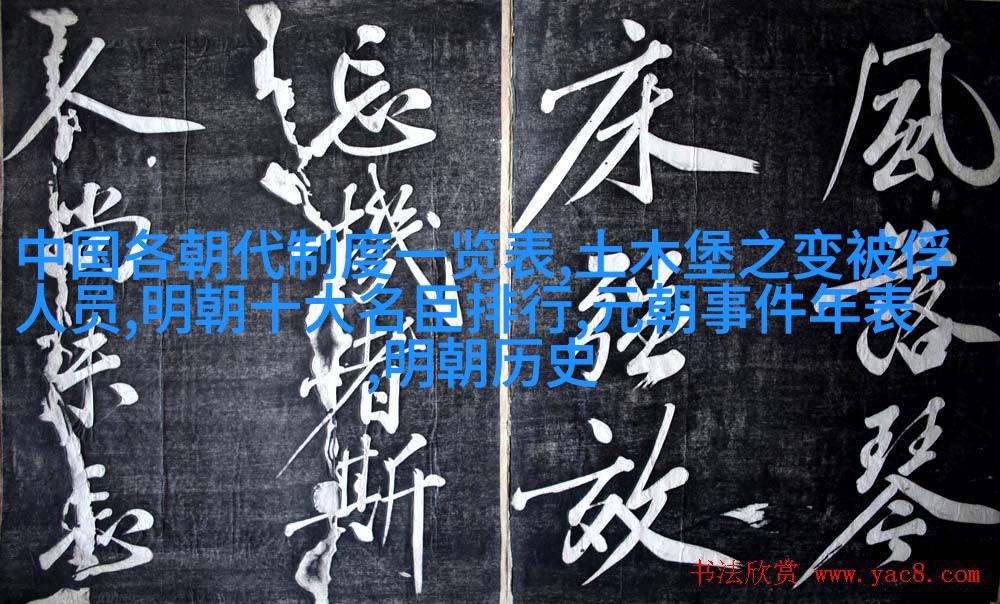 中国各朝代制度一览表,土木堡之变被俘
人员,明朝十大名臣排行,元朝事件年表
,明朝历史
風落琴
床
忘機者斯
书法欣赏 www.yac8.com